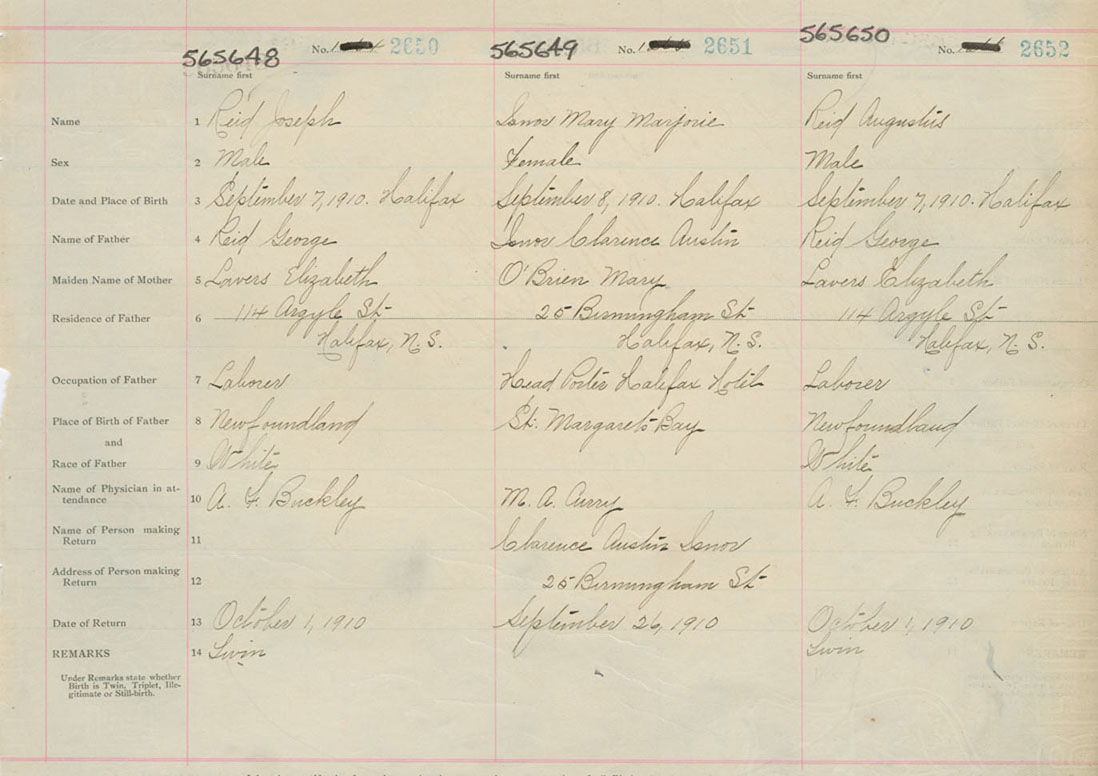 565648 No. 2650 565649 No. 2651 565650 No. 2652
Surname first Surname first Surname first
Name 1 Reid Joseph Isnor Mary Marjorie Reid Augustus
Sex 2 Male Female Male
Date and Place of Birth 3 September 7, 1910. Halifax September 8, 1910. Halifax September 7, 1910. Halifax
Name of Father 4 Reid George Isnor Clarence Austin Reid George
Maiden Name of Mother 5 Lavers Elizabeth O'Brien Mary Lavers Elizabeth
Residence of Father 6 114 Argyle St 25 Birmingham St 114 Argyle St
Halifax, N.S. Halifax, N.S. Halifax, N.S.
Occupation of Father 7 Laborer Head Porter Halifax Hotel Laborer
Place of Birth of Father 8 Newfoundland St. Margarets Bay Newfoundland
and
Race of Father 9 White White
Name of Physician in at-
tendance 10 A. F. Buckley M. A. Curry A. F. Buckley
Name of Person making
Return 11 Clarence Austin Isnor
Address of Person making
Return 12 25 Birmingham St
Date of Return 13 October 1, 1910 September 26, 1910 October 1, 1910
REMARKS 14 Twin Twin
Under Remarks state whether
Birth is Twin, Triplet, Ille-
gitimate or Still-birth.